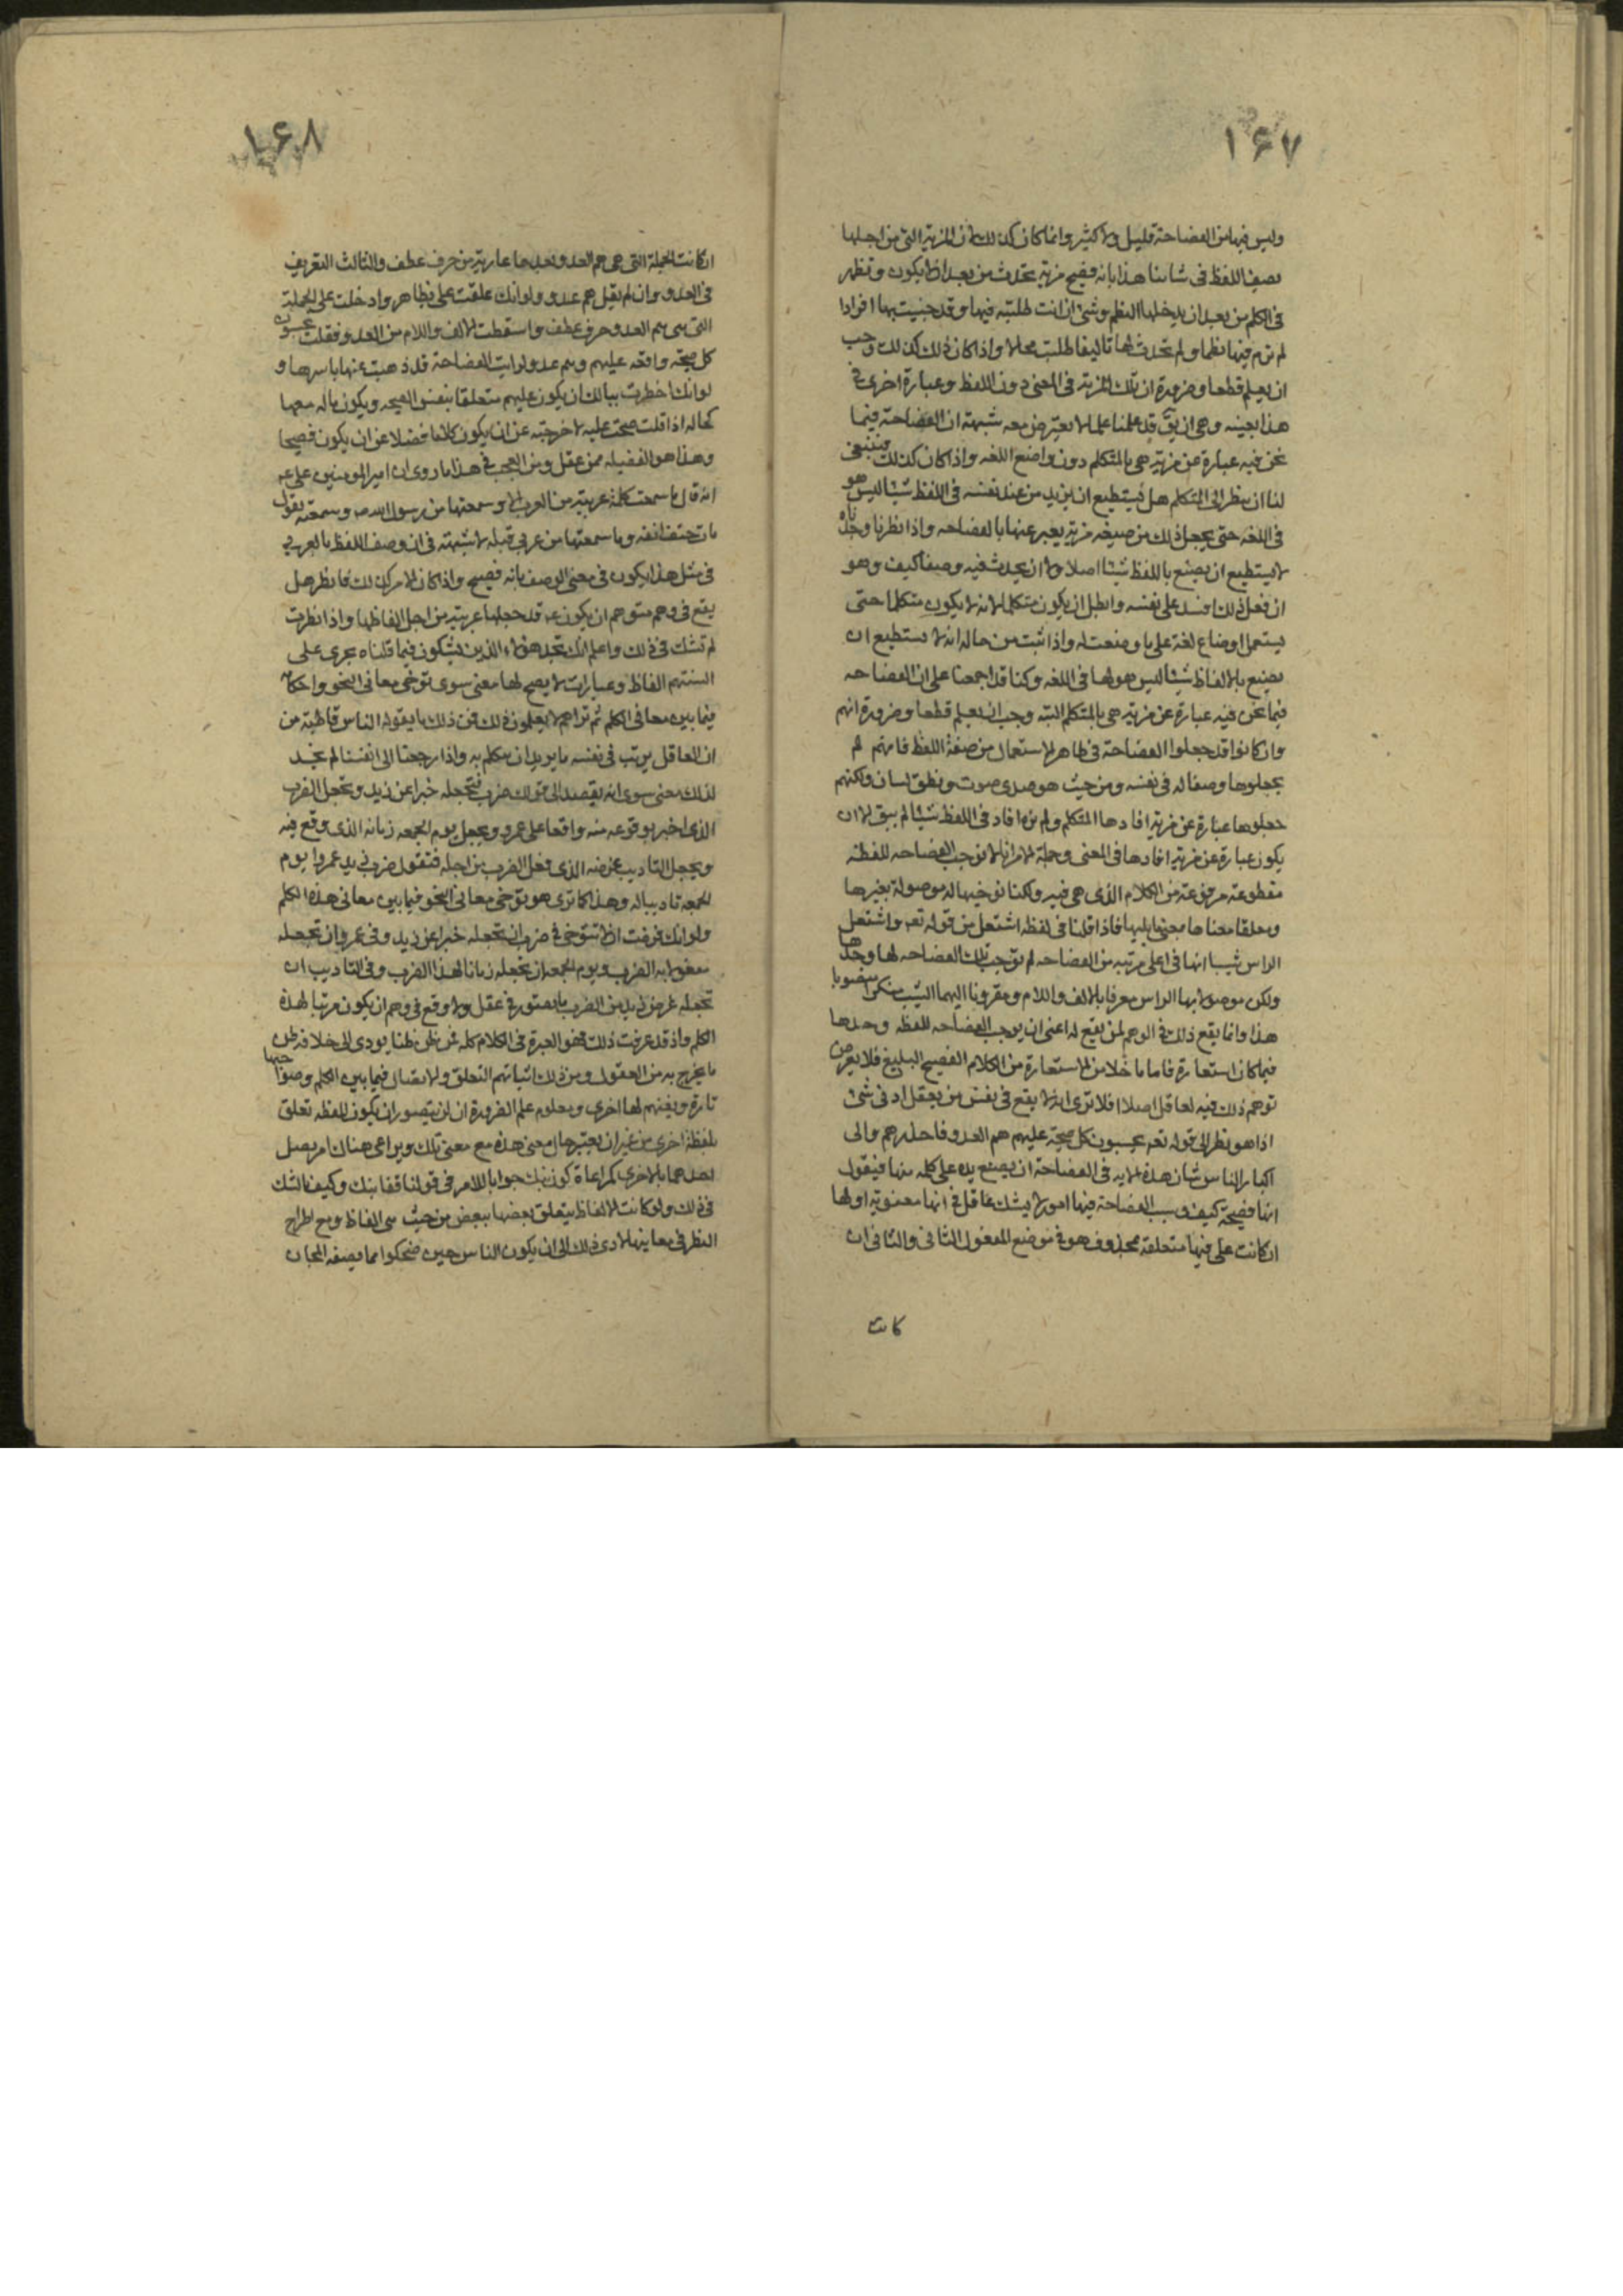 ١۶٧
وليس فيها من الفصاحة قليل ولا كثير وانما كان كذلك لان المزية التى من اجلها
نصف اللفظ فى شاننا هذا بانه فصيح مزية تحدث من بعد ان لا يكون وتظهر
فى الكلم من بعد ان يدخلها النظم وشئ ان انت طلبته فيها وقد جئت بها افرادا
لم ترم فيها نظما ولم تحدث لها تاليفا طلبت محالا واذا كان ذلك كذلك وجب
ان يعلم قطعا وضرورة ان تلك المزية فى المعنى دون اللفظ وعبارة اخرى فى
هذا بعينه وهى ان يق قد علمنا علما لا يعترض معه شبهة ان الفصاحة فيما
نحن فيه عبارة عن مزية هى بالمتكلم دون واضع اللغه واذا كان كذلك فينبغى
لنا ان ينظر الى المتكلم هل يستطيع ان يزيد من عند نفسه فى اللفظ شيئا ليس هو
فى اللغه حتى يجعل ذلك من صنيعه مزية يعبر عنها بالفصاحه واذا نظرنا وجدناه
لا يستطيع ان يصنع باللفظ شيئا اصلا ولا ان يحدث فيه وصفا كيف وهو
ان فعل ذلك افسد على نفسه وابطل ان يكون متكلما لانه لا يكون متكلما حتى
يستعمل اوضاع لغة على ما وضعت له واذا ثبت من حاله انه لا يستطيع ان
يصنع بالالفاظ شيئا ليس هو لها فى اللغه وكنا قد اجمعنا على ان الفصاحه
فيما نحن فيه عبارة عن مزية هى بالمتكلم البته وجب ان يعلم قطعا وضرورة انهم
وان كانوا قد جعلوا الفصاحة فى ظاهر الاستعمال من صفة اللفظ فانهم لم
يجعلوها وصفا له فى نفسه ومن حيث هو صدى صوت ونطق لسان ولكنهم
جعلوها عبارة عن مزية افادها المتكلم ولم تزد افاد فى اللفظ شيئا لم يبق الا ان
يكون عبارة عن مزية افادها فى المعنى وجملة الامر انا لا نوجب الفصاحه للفظة
مقطوعة مرفوعة من الكلام الذى هى فيه ولكنا نوجبها له موصولة بغيرها
ومعلقا معناها بمعنى ما يليها فاذا قلنا فى لفظه اشتعل من قوله تعه واشتعل
الراس شيبا انها فى اعلى مرتبه من الفصاحه لم نوجب تلك الفصاحه لها وحدها
ولكن موصولا بها الراس معرفا بالالف واللام ومقرونا اليهما الشيب منكرا منصوبا
هذا وانما يقع ذلك فى الوهم لمن يقع له اعنى ان يوجب الفصاحه للفظه وحدها
فيما كان استعارة فاما ما خلا من الاستعارة من الكلام الفصيح البليغ فلا يعرض
توهم ذلك فيه لعاقل اصلا افلا ترى انه لا يقع فى نفس من يعقل ادنى شئ
اذا هو نظر الى قوله تعه يحسبون كل صيحة عليهم هم العدو فاحذرهم والى
اكبار الناس شان هذه الايه فى الفصاحة ان يضع يده على كلمه منها فيقول
انها فصيحة كيف وسبب الفصاحة فيها امور لا يشك عاقل فى انها معنوية اولها
ان كانت على فيها متعلقه بمحذوف هو فى موضع المفعول الثانى والثانى ان
كانت
١۶٨
ان كانت الجملة التى هى هم العدو بعدها عارية من حرف عطف والثالث التعريف
فى العدو وان لم يقل هم عدو ولو انك علقت على بظاهر وادخلت على الجملة
التى هى هم العدو حرف عطف واسقطت الالف واللام من العدو فقلت يحسبون
كل صيحة واقعه عليهم وهم عدو لرايت الفصاحة قد ذهبت عنها باسرها و
لو انك اخطرت ببالك ان يكون عليهم متعلقا بنفس الصيحه ويكون حاله معها
كحاله اذا قلت صحت عليه لاخرجته عن ان يكون كلاما فضلا عن ان يكون فصيحا
وهذا هو الفضيله لمن عقل ومن العجب فى هذا ما روى ان امير المومنين على عه
انه قال ما سمعت كلمة عربية من العرب الا وسمعتها من رسول الله ص وسمعته يقول
مات حتف انفه وما سمعتها من عربى قبله لا شبهة فى ان وصف اللفظ بالعربى
فى مثل هذا يكون فى معنى الوصف بانه فصيح واذا كان الامر كذلك فانظر هل
يقع فى وهم متوهم ان يكون عه قد جعلها عربية من اجل الفاظها واذا نظرت
لم تشك فى ذلك واعلم انك تجد هولاء الذين يشكون فيما قلناه يجرى على
السنتهم الفاظ وعبارات لا يصح لها معنى سوى توخى معانى النحو واحكامه
فيما بين معانى الكلم ثم تراهم لا يعلمون ذلك فمن ذلك ما يقوله الناس قاطبة من
ان العاقل يرتب فى نفسه ما يريد ان يتكلم به واذا رجعنا الى انفسنا لم نجد
لذلك معنى سوى انه يقصد الى قولك ضرب فتجعله خبرا عن زيد وتجعل الضرب
الذى اخبر بوقوعه منه واقعا على عمرو ويجعل يوم الجمعه زمانه الذى وقع فيه
ويجعل التاديب غرضه الذى فعل الضرب من اجله فتقول ضرب زيد عمروا يوم
الجمعه تاديبا له وهذا كما ترى هو توخى معانى النحو فيما بين معانى هذه الكلم
ولو انك فرضت ان لا تتوخى فى ضرب ان تجعله خبرا عن زيد وفى عمرو ان تجعله
مفعولا به الضرب ويوم الجمعه ان تجعله زمانا لهذا الضرب وفى التاديب ان
تجعله غرض زيد من الضرب ما يصتور فى عقل ولا وقع فى وهم ان يكون مرتبا لهذه
الكلم واذ قد عرفت ذلك فهو العبرة فى الكلام كله فمن ظن ظنا يودى الى خلافه ظن
ما يخرج به من العقول ومن ذلك اثباتهم التعلق والاتصال فيما بين الكلم وصواحبها
تارة ونفيهم لها اخرى ومعلوم علم الضرورة ان لن يتصور ان يكون للفظه تعلق
بلفظة اخرى من غير ان يعتبر حال معنى هذه مع معنى تلك ويراعى هناك امر يصل
احدهما بالاخرى كمراعاة كون نبك جوابا للامر فى قولنا قفا نبك وكيف بالشك
فى ذلك ولو كانت الالفاظ يتعلق بعضها ببعض من حيث هى الفاظ ومع اطراح
النظر فى معانيها لادى ذلك الى ان يكون الناس حين ضحكوا مما يصفه المجان